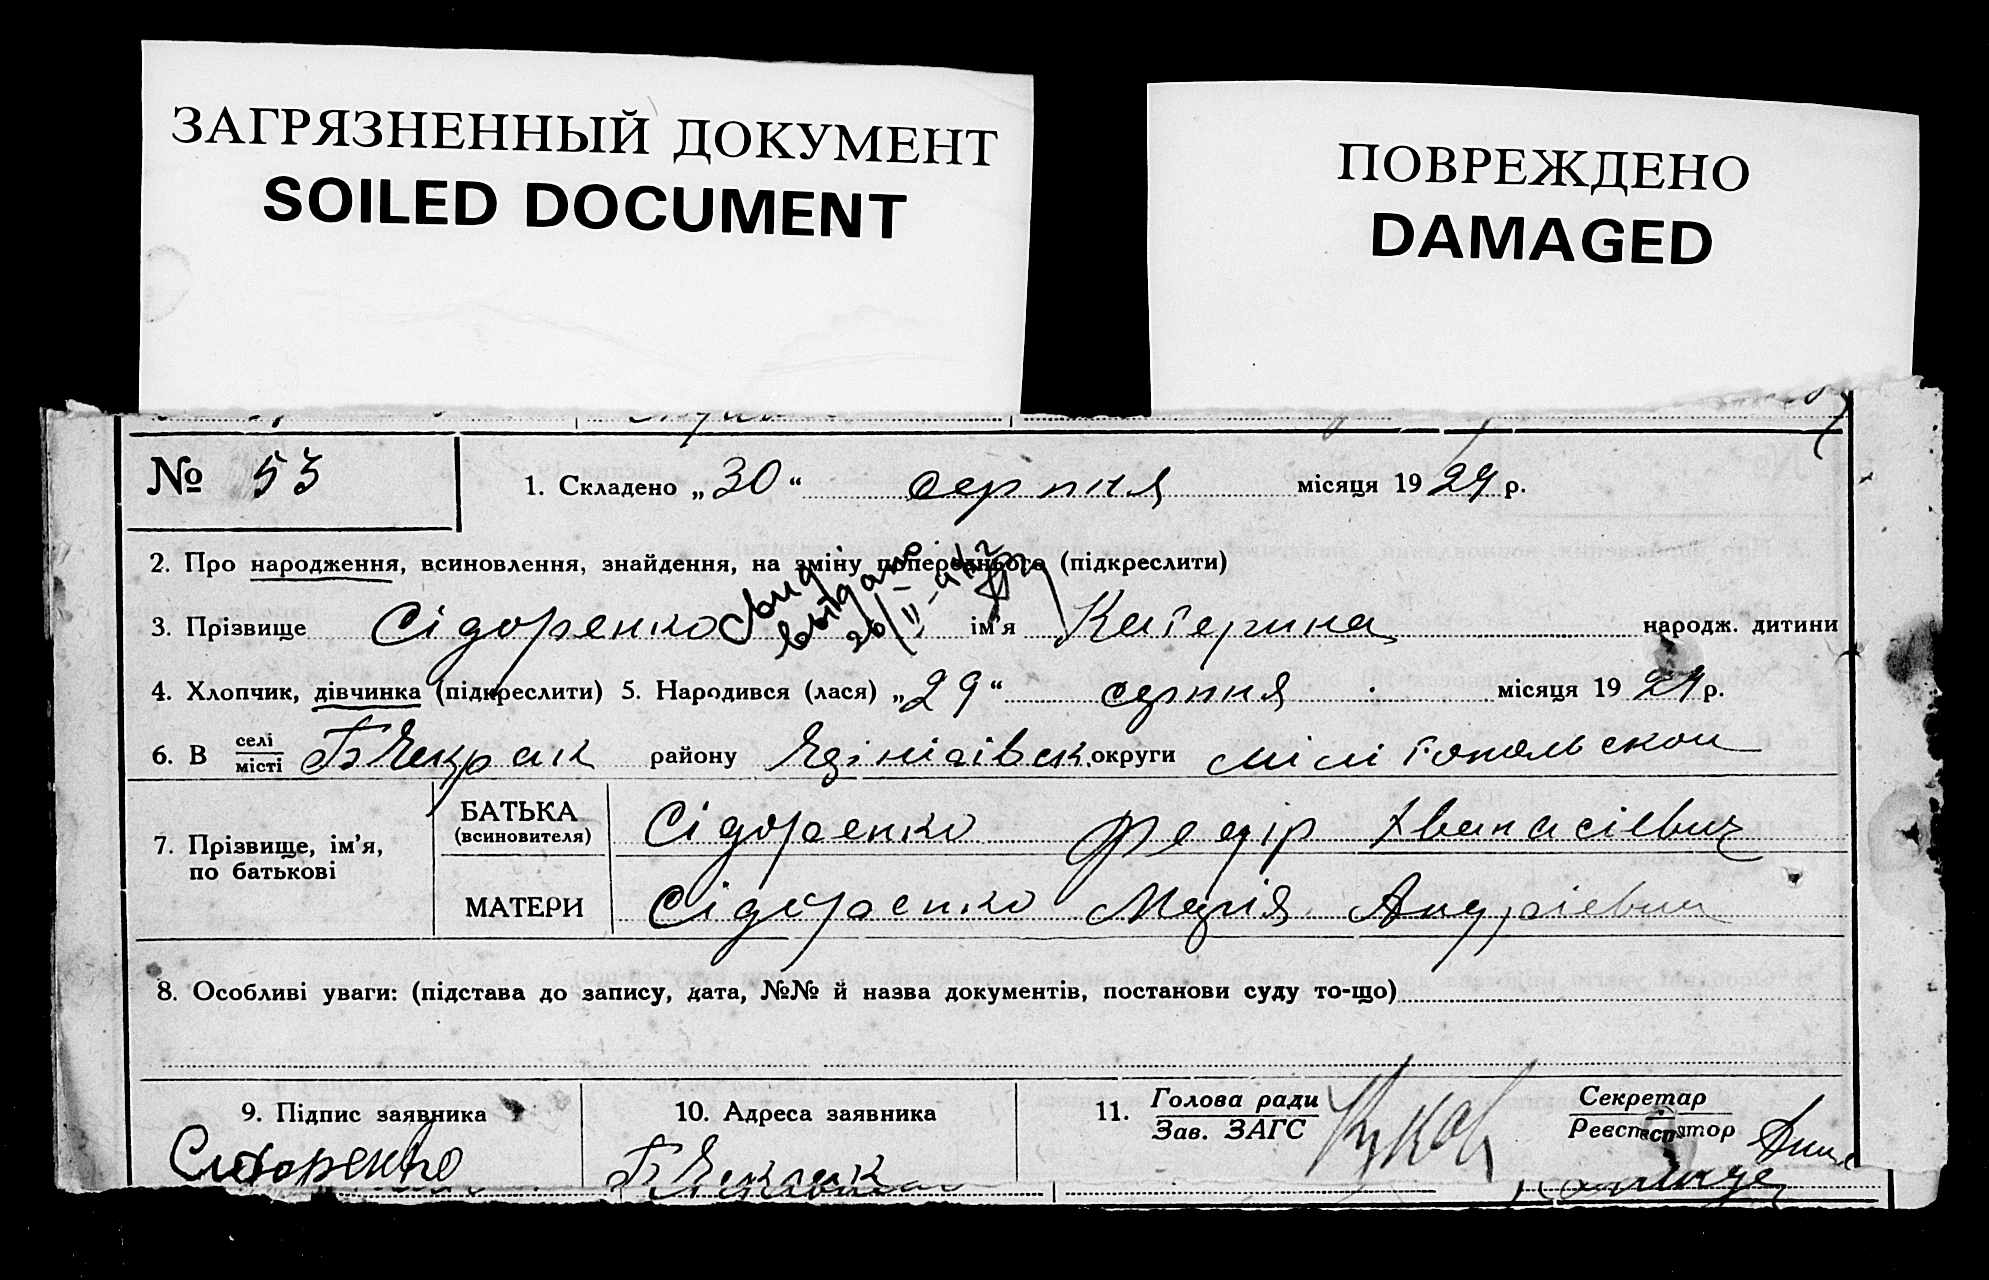 ЗАГРЯЗНЕННЫЙ ДОКУМЕНТ
SOILED DOCUMENT
ПОВРЕЖДЕНО
DAMAGED
№ 53
1. Складено „30“ серпня місяця 1924 р.
2. Про народження, всиновлення, знайдення, на зміну попереднього (підкреслити)
Свид
выдано
26/II
3. Прізвище Сідоренко ім'я Катерина народж. дитини
4. Хлопчик, дівчинка (підкреслити) 5. Народився (лася) „29“ серпня місяця 1924 р.
6. В селі місті Б Якерак району округи Мілітопольскои
7. Прізвище, ім'я, по батькові
БАТЬКА (всиновителя)
Сідоренко Федір
МАТЕРИ
Сідоренко Марія Андріевна
8. Особливі уваги: (підстава до запису, дата, №№ й назва документів, постанови суду то-що)
9. Підпис заявника
Сидоренко
10. Адреса заявника
11. Голова ради
Зав. ЗАГС
Секретар
Реєстратор